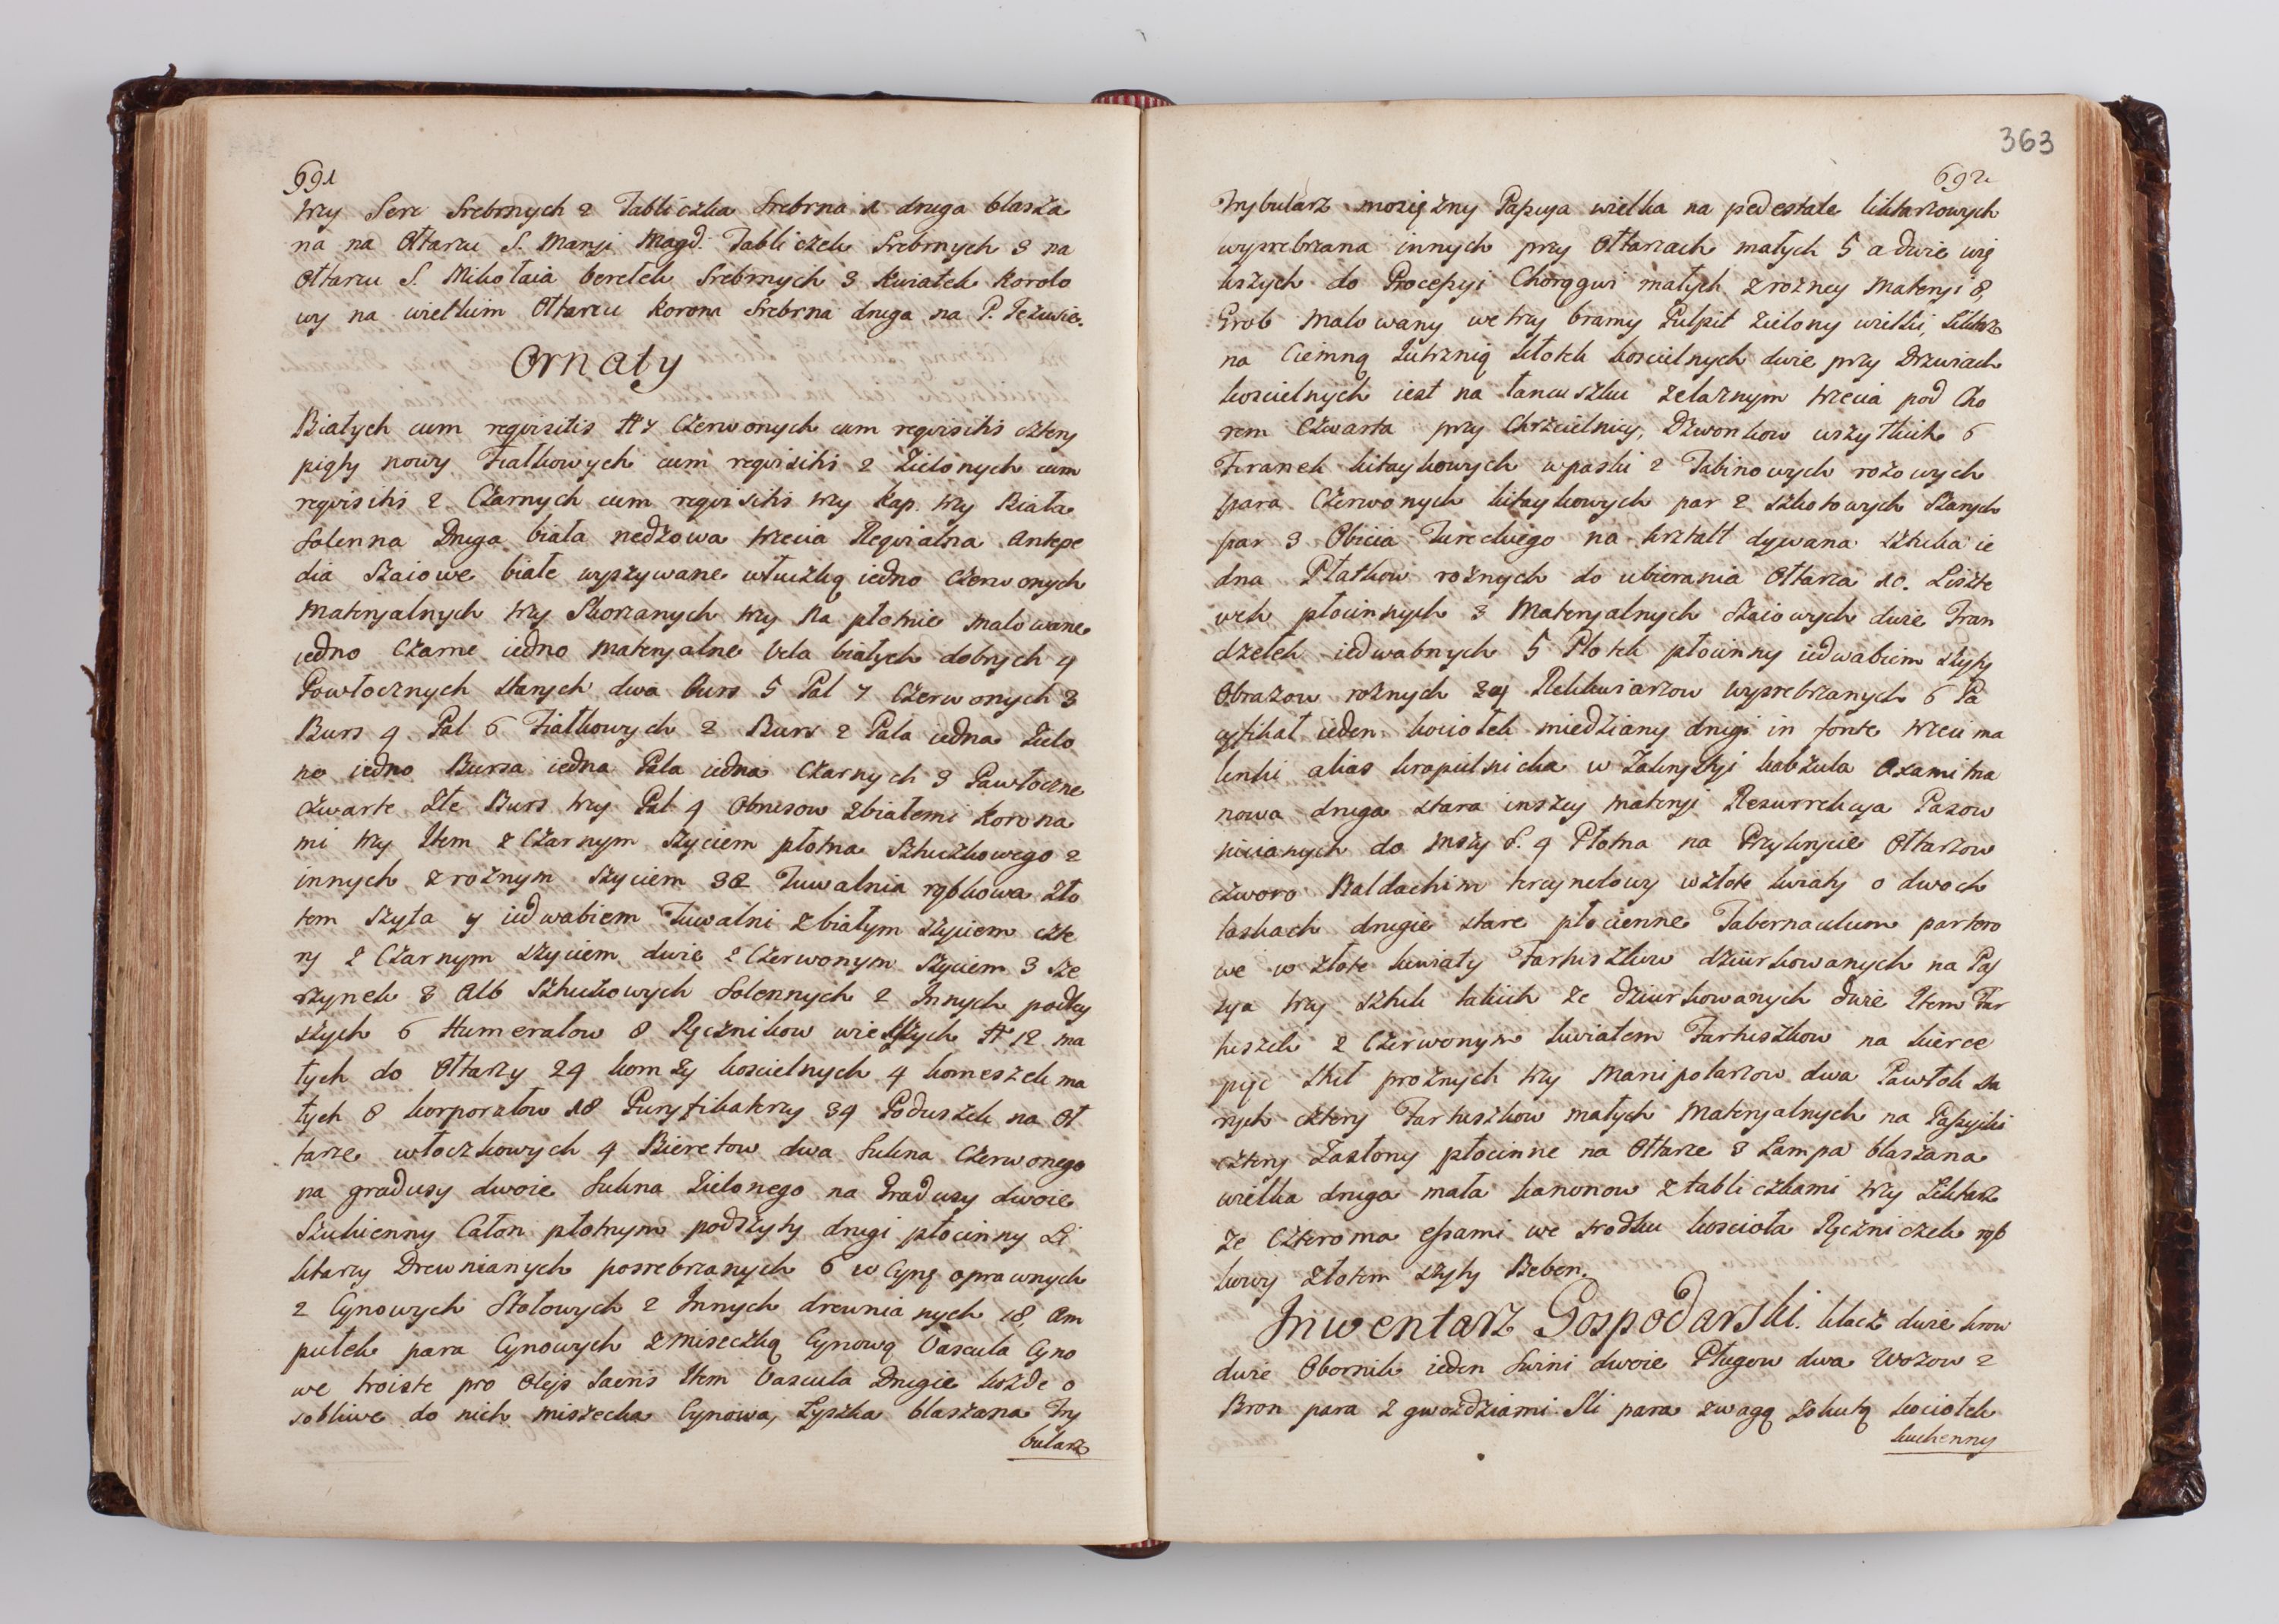 691
trzy Serc Srebrnych 2 Tabliczka Srebrna 1 druga blasza
na na Ołtarzu S. Maryi Magd. Tabliczek Srebrnych 3 na
Ołtarzu S. Mikołaia berełek Srebrnych 3 kwiatek korolo
wy na wielkim Ołtarzu korona Srebrna druga na P. Jezusie.
Ornaty
Białych cum reqvisitis # 7 Czerwonych cum reqvisitis cztery
piąty nowy Fiałkowych cum reqvisitis 2 Zielonych cum
reqvisitis 2 Czarnych cum reqvisitis trzy kap. trzy Biała
Solenna Druga biała nedzowa trzecia Reqvialna Antepe
dia Szaiowe białe wyszywane włuczką iedno Czerwonych
Materyalnych trzy Skorzanych trzy Na płotnie malowane
iedno Czarne iedno Materyalne Vela białych dobrych 4
Powłocznych starych dwa Burs 5 Pal 7 Czerwonych 3
Burs 4 Pal 6 Fiałkowych 2 Burs 2 Pala iedna Zielo
ne iedno Bursa iedna Pala iedna Czarnych 3 Pawłoczne
czwarte złe Burs trzy Pal 4 Obrusow zbiałemi korona
mi trzy Item z Czarnym szyciem płotna Sztuczkowego 2
innych z rożnym szyciem 32 Tuwalnia rąbkowa zło
tem szyta y iedwabiem Tuwalni z białym szyciem czte
ry z Czarnym szyciem dwie z Czerwonym szyciem 3 Sze
rzynek 3 Alb Sztuczkowych Solennych 2 Innych podley
szych 6 Humerałow 8 Ręcznikow wiekszych # 12 ma
łych do Ołtarzy 24 komży koscielnych 4 komeszek ma
łych 8 korporałow 18 Puryfikaterzy 34 Poduszek na Oł
tarze włoczkowych 4 Bieretow dwa Sukna Czerwonego
na gradusy dwoie Sukna Zielonego na Gradusy dwoie
Szukienny Całon płotnym podszyty drugi płocinny Li
ktarzy Drewnianych posrebrzanych 6 w Cynę oprawnych
2 Cynowych Stołowych 2 Innych drewnianych 18, Am
pułek para Cynowych z miseczką Cynową Vascula Cyno
we troiste pro Olejs Sacris Item Vascula Drugie każde o
sobliwe do nich miszecka Cynowa, Łyszka blaszana Try
bularz
363
692
Trybularz mosiężny Papuga wielka na pedestale liktarzowych
wysrebrzana innych przy Ołtarzach małych 5 a dwie wię
kszych do Processyi Chorągwi małych z rożney materyi 8,
Grob Malowany we trzy bramy Pulpit zielony wielki, Liktarz
na Ciemną Jutrznią kłotek koscielnych dwie przy Drzwiach
koscielnych iest na łancuszku żelaznym trzecia pod Cho
rem Czwarta przy Chrzcielnicy, Dzwonkow wszytkich 6
Firanek kitaykowych w paski 2 Tabinowych rożowych
para Czerwonych kitaykowych par 2 szkotowych Starych
par 3 Obicia Tureckiego na krztałt dywana sztuka ie
dna Płatkow rożnych do ubierania Ołtarza 10. Liszte
wek płocinnych 3 Materyalnych Szaiowych dwie Fran
dzelek iedwabnych 5 Płotek płocinny iedwabiem szyty
Obrazow rożnych 24 Relikwiarzow wysrebrzanych 6 Pa
cyfikał ieden kociołek miedziany drugi in fonte trzeci ma
lenki alias kropielnicka w Zakrystyi kabzula Axamitna
nowa druga stara inszey materyi Resurrekcya Pasow
nicianych do mszy S. 4 Płotna na Przykrycie Ołtarzow
czworo Baldachim terzynelowy w złote kwiaty o dwoch
laskach drugie stare płocienne Tabernaculum partero
we w złote kwiaty Fartuszkow dziurkowanych na Pas
sya trzy sztuk takich ze dziurkowanych dwie Item Far
tuszek z Czerwonym kwiatem Fartuszkow na kierce
pięc Szkł prożnych trzy Manipolarzow dwa Pawłok sta
rych cztery Fartuszkow małych Materyalnych na Passyiki
cztery Zasłony płocinne na Ołtarze 3 Lampa blaszana
wielka druga mała kanonow z tabliczkami trzy Liktarz
ze Czteroma essami we srodku koscioła Ręczniczek rąb
kowy złotem szyty Beben.
Jnwentarz Gospodarski. klacz dwie krow
dwie Obornik ieden Swini dwoie Pługow dwa Wozow 2
Bron para z gwozdziami Sli para zwagą zokutą kociołek
kuchenny